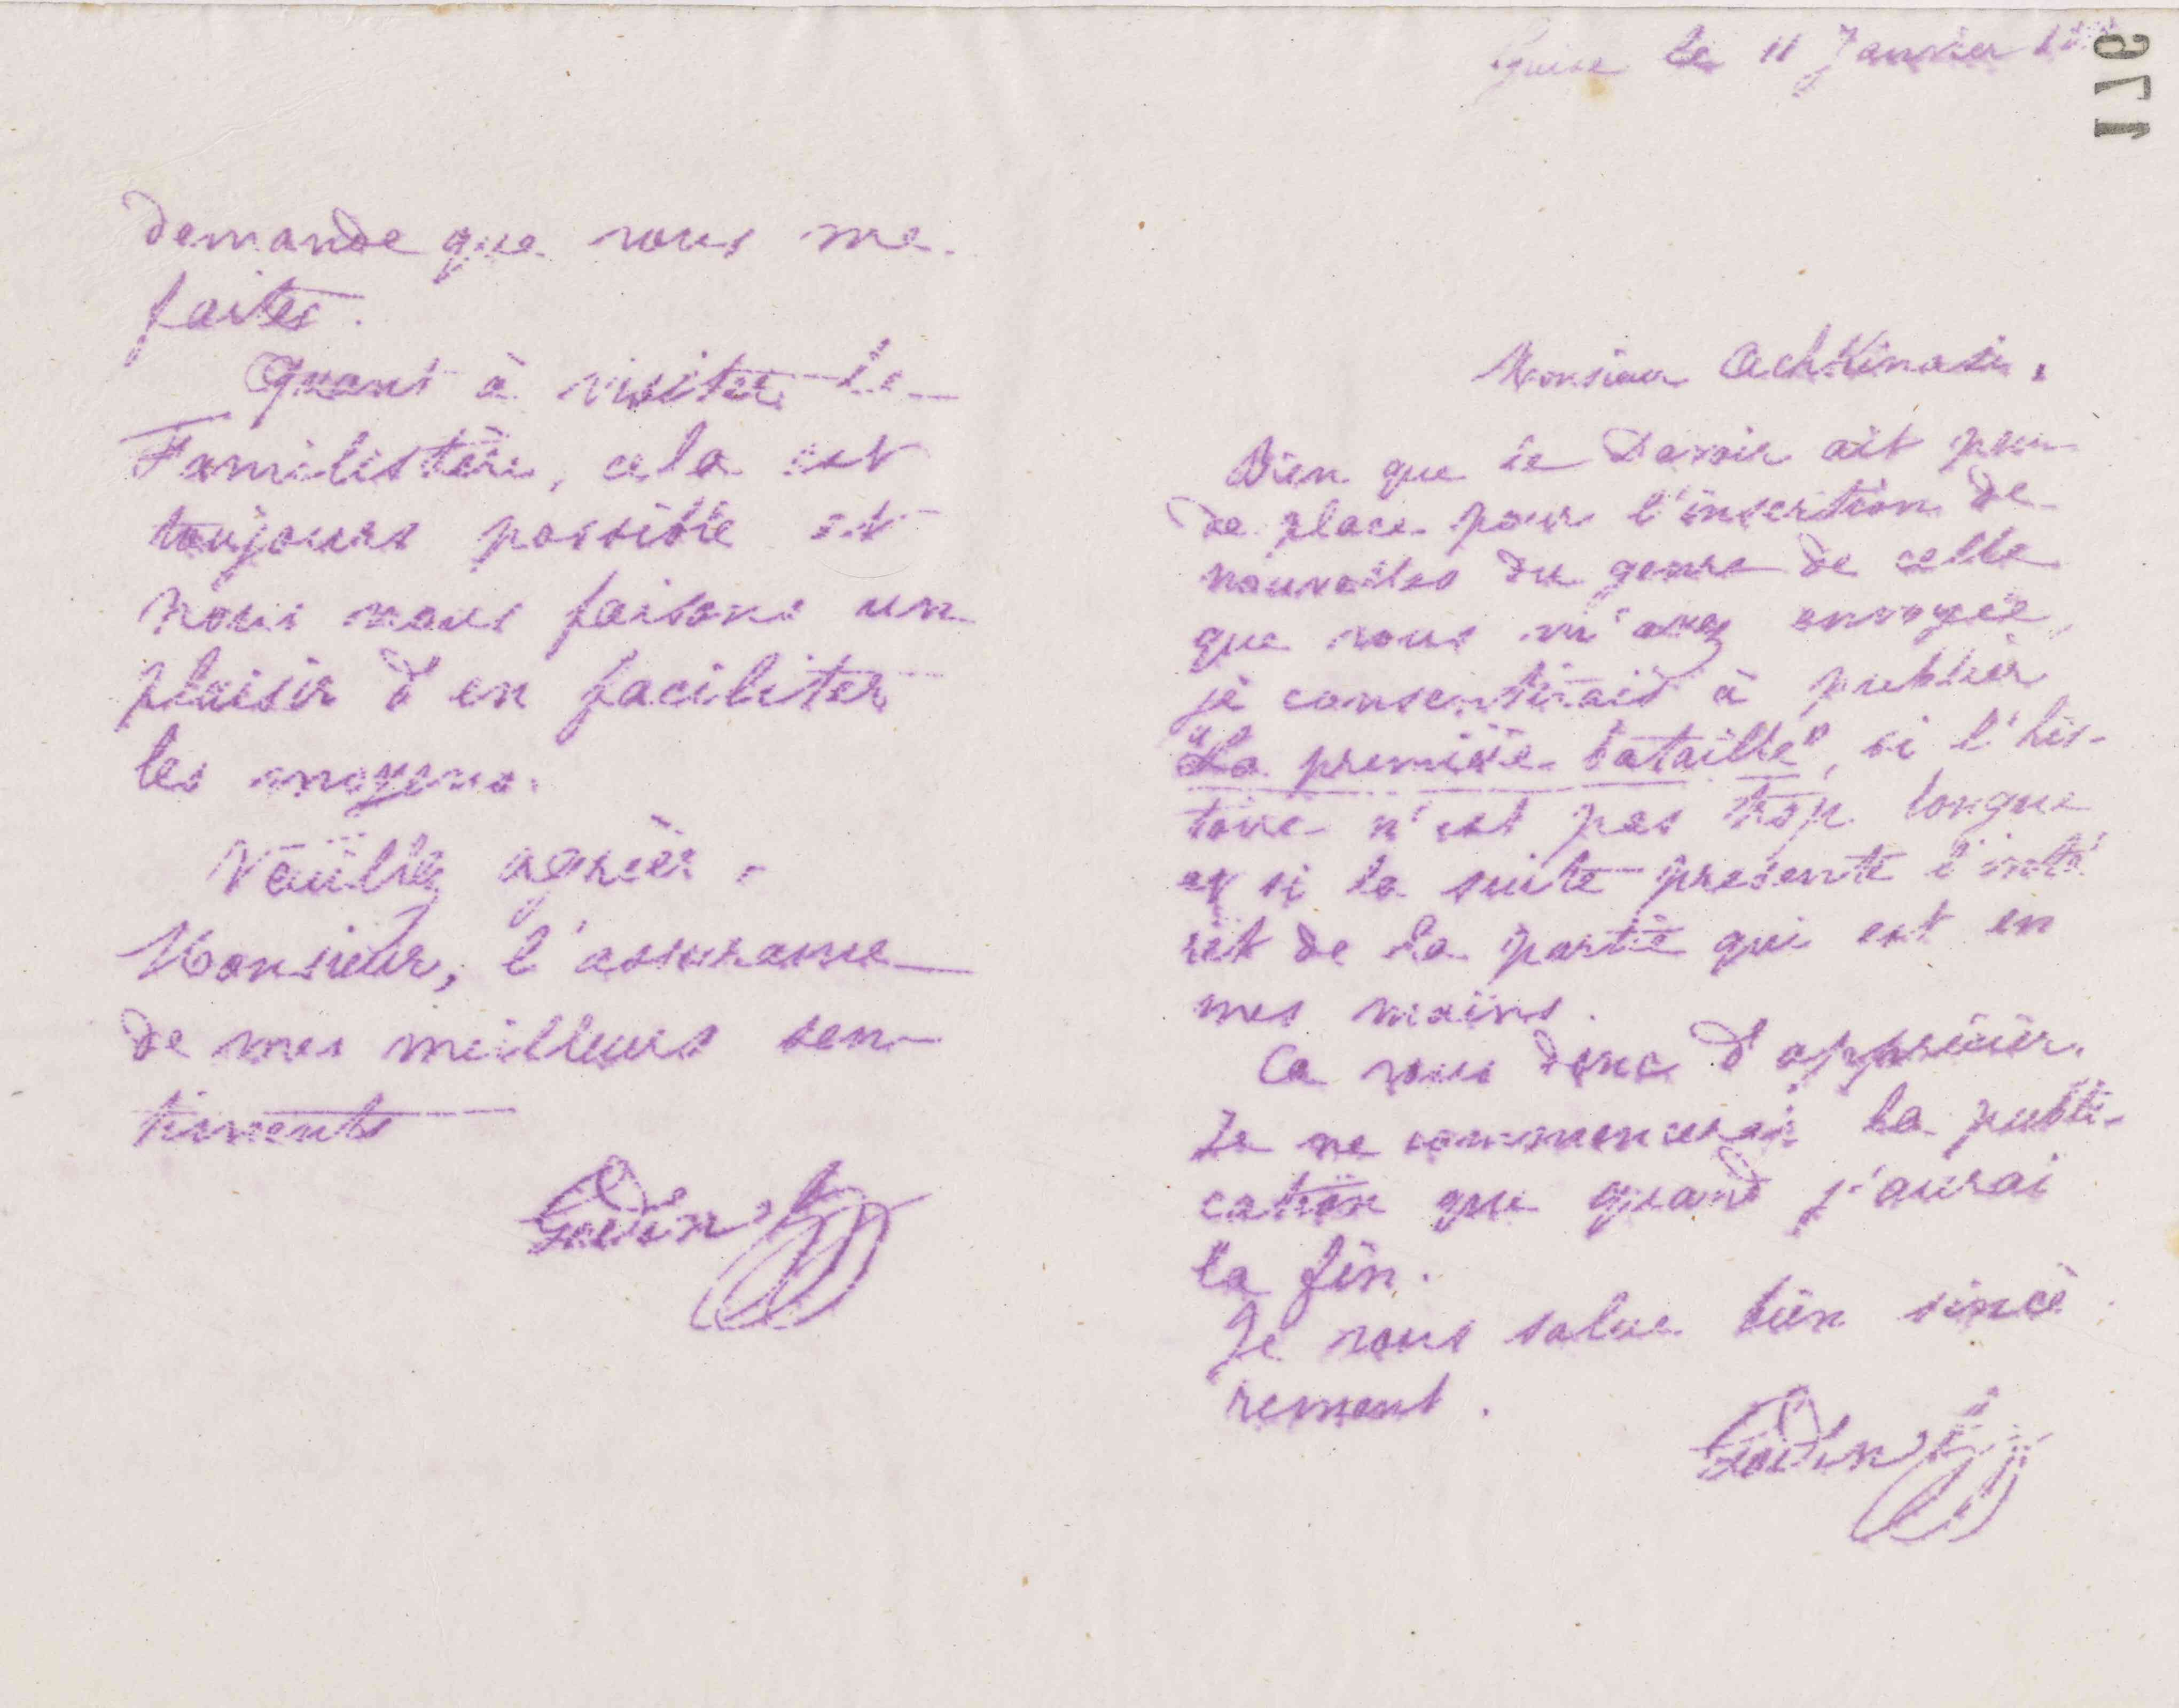 demande que vous me
faites.
Quant à visiter le
Familistère, cela est
toujours possible et
nous nous faisons un
plaisir d'en faciliter
les moyens.
Veuillez agréer,
Monsieur, l'assurance
de mes meilleurs sen-
timents
Godin
176
Guise le 11 Janvier
Monsieur Achkinasi,
Bien que le Devoir ait peu
de place pour l'insertion de
nouvelles du genre de celle
que vous m'avez envoyée,
je consentirais à publier
"La première bataille", si l'his-
toire n'est pas trop longue
et si la suite présente l'inté
rêt de la partie qui est en
mes mains.
A vous donc d'apprécier.
Je ne commencerai la publi-
cation que quand j'aurai
la fin.
Je vous salue bien sincè
rement.
Godin